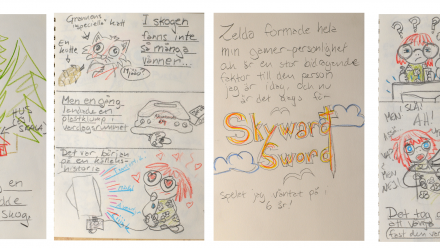 HUS
SKALA
en
dde
Skog.
Grannens
"speciella" katt
En
kotte
Mjao!
I skogen
fanns inte
så många
vänner...
Men en gång
landade en
plastklump i
vardagsrummet
Det var början
på en kärleks-
historia
Zelda formade hela
min gamer-personlighet
och är en stor bidragande
faktor till den person
jag är idag. Och nu
är det dags för
Skyward
Sword
Spelet jag väntat på i
6 år!
I SLA
AH!
MEN
NEJ!
Det tog
ett
fast den var